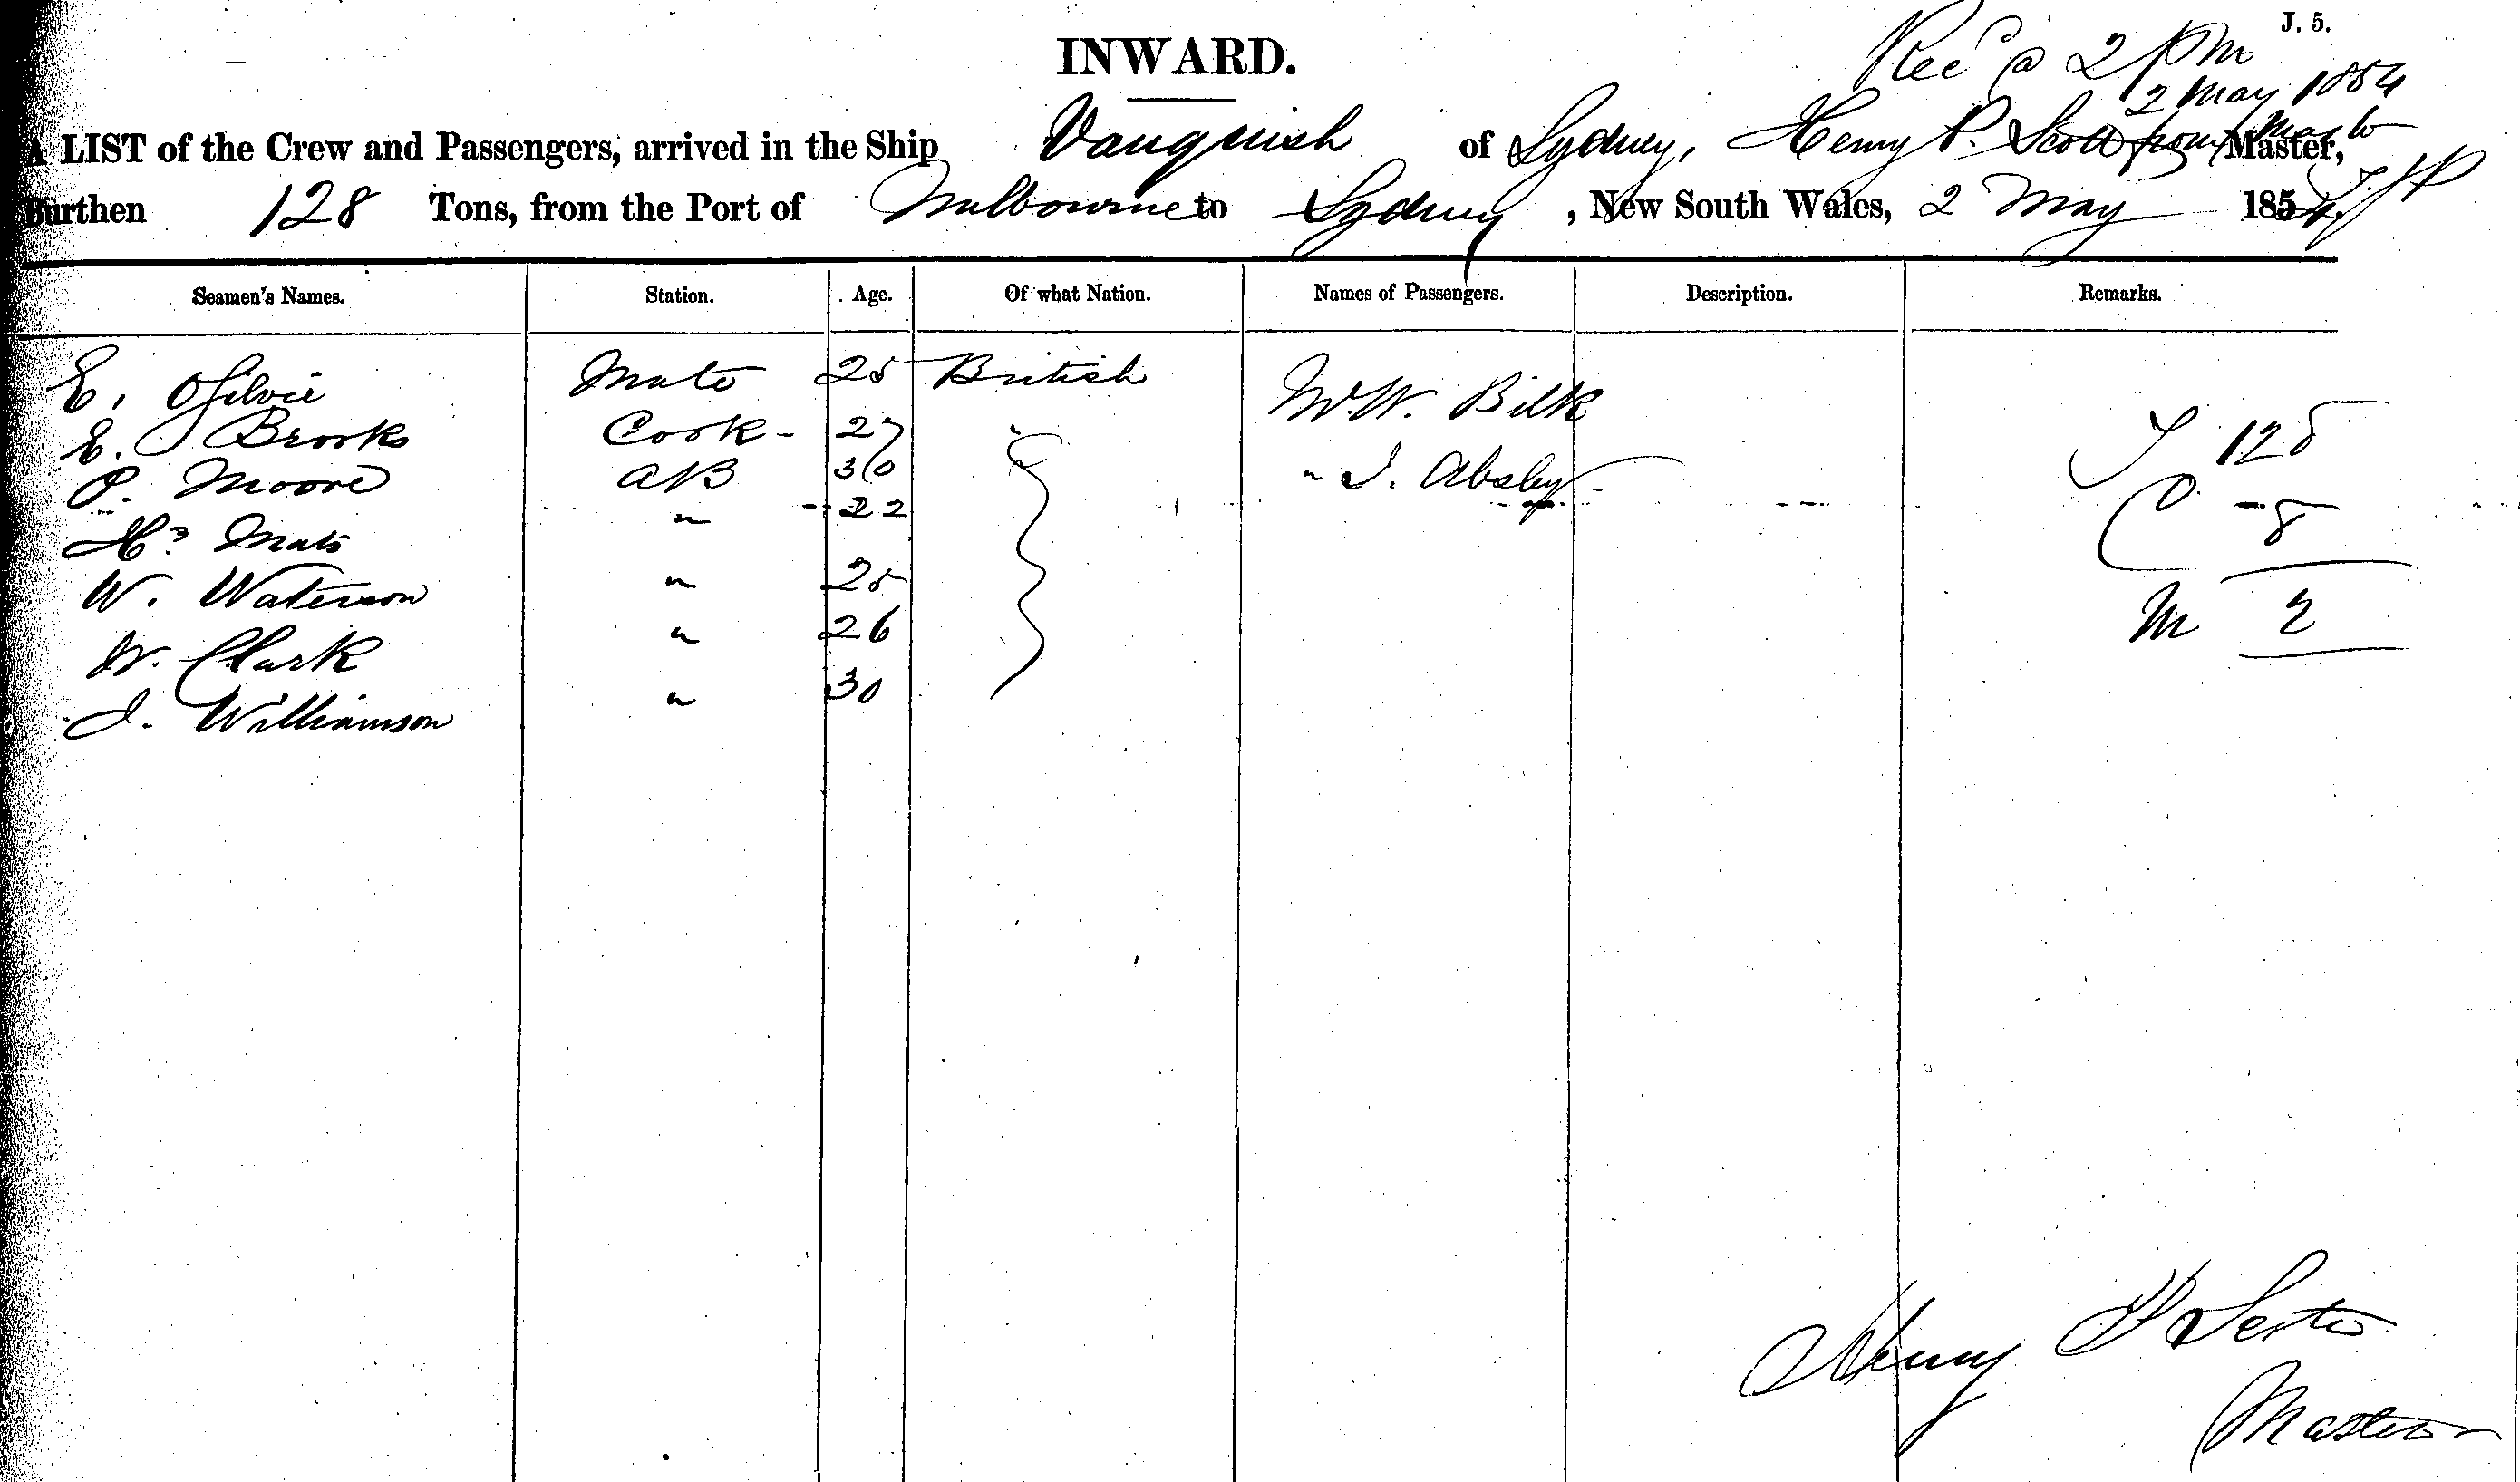 J. 5.
INWARD.
Rec @ 2 pm
2 May 1854
A LIST of the Crew and Passengers, arrived in the Ship Vanquish of Sydney, Henry P. Scott from Master,
Burthen 128 Tons, from the Port of Melbourne to Sydney, New South Wales, 2 May 1854.
Seamen's Names. Station. Age. Of what Nation. Names of Passengers. Description. Remarks.
E. Ogilvie Mate 25 British Mr W. Bilk
E. Brooks Cook - 27 T 128
P. Moore AB 30 " J. Absley
H. Mats " 22 C - 8
W. Waterson " 25
W. Clark " 26 M 2
J. Williamson " 30
Henry P
Master